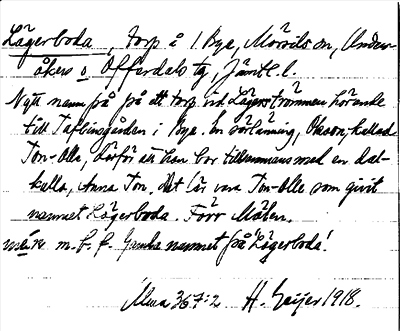 Lägerboda, torp å l. Bye, Mörsils sn, Under-
åkers o Offerdals tg, Jämtl. l.
Nytt namn på på ett torp vid Lägerströmmen hörande
till Taflingården i Bye. En sörlänning, Olsson, kallad
Ton-Olle, därför att han bor tillsammans med en dal-
kulla, Anna Ton. Det lär vara Ton-Olle som givit
namnet Lägerboda. Förr Målen.
m. f. f. Gamla namnet på 'Lägerboda'.
367:2 H. Geijer 1918.